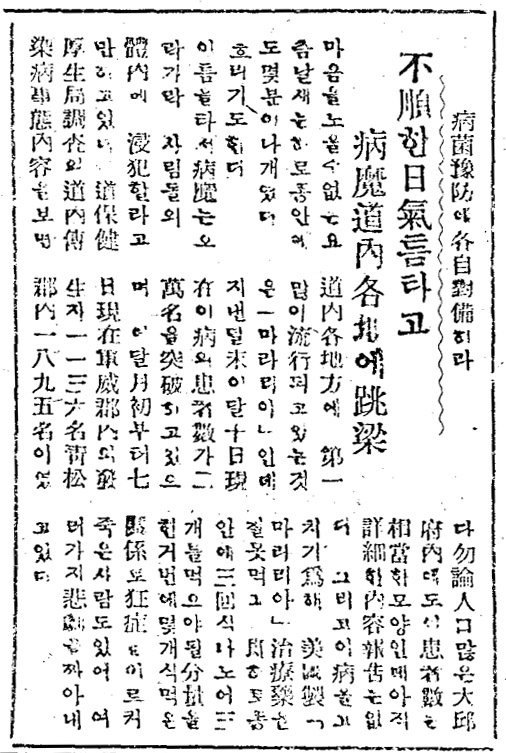 病菌豫防에各自對備하라
不順한日氣틈타고
病魔道內各地에跳梁
마음을노을수없는요
즘날새는하로종안에
도몇분이나개였다
흐리기도한다
이틈을타서病魔는오
락가락 사람들의
體內에 浸犯할라고
만하고있다 道保健
厚生局調査의道內傳
染病事態內容을보면
道內各地方에 第一
많이流行되고있는것
은「마라리아」인데
지낸달末이달十日現
在이病의患者數가二
萬名을突破하고있으
며 이달月初부터七
日現在軍威郡內의發
生자一一三六名靑松
郡內一八九五名이였
다勿論人口많은大邱
府內에도이患者數는
相當한모양인데아직
詳細한內容報告는없
다 그리고이病을고
치기爲해 美國製「
마라리아」治療藥은
잘못먹고 即하로동
안에三回식나노어三
개들먹으야될分量을
한거번에몇개식먹은
關係로狂症을이르켜
죽은사람도있어 여
러가지悲劇을짜아내
고있다